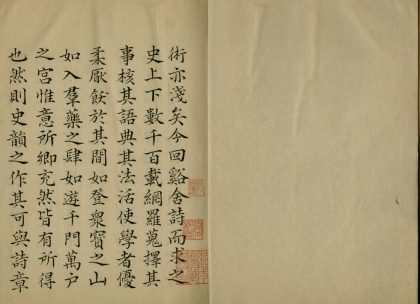 術亦淺矣今回谿舍詩而求之
史上下數千百載網羅蒐擇其
事核其語典其法活使學者優
柔厭飫於其間如登衆寳之山
如入羣藥之肆如遊千門萬户
之宫惟意所卿充然皆有所得
也然則史韻之作其可與詩章